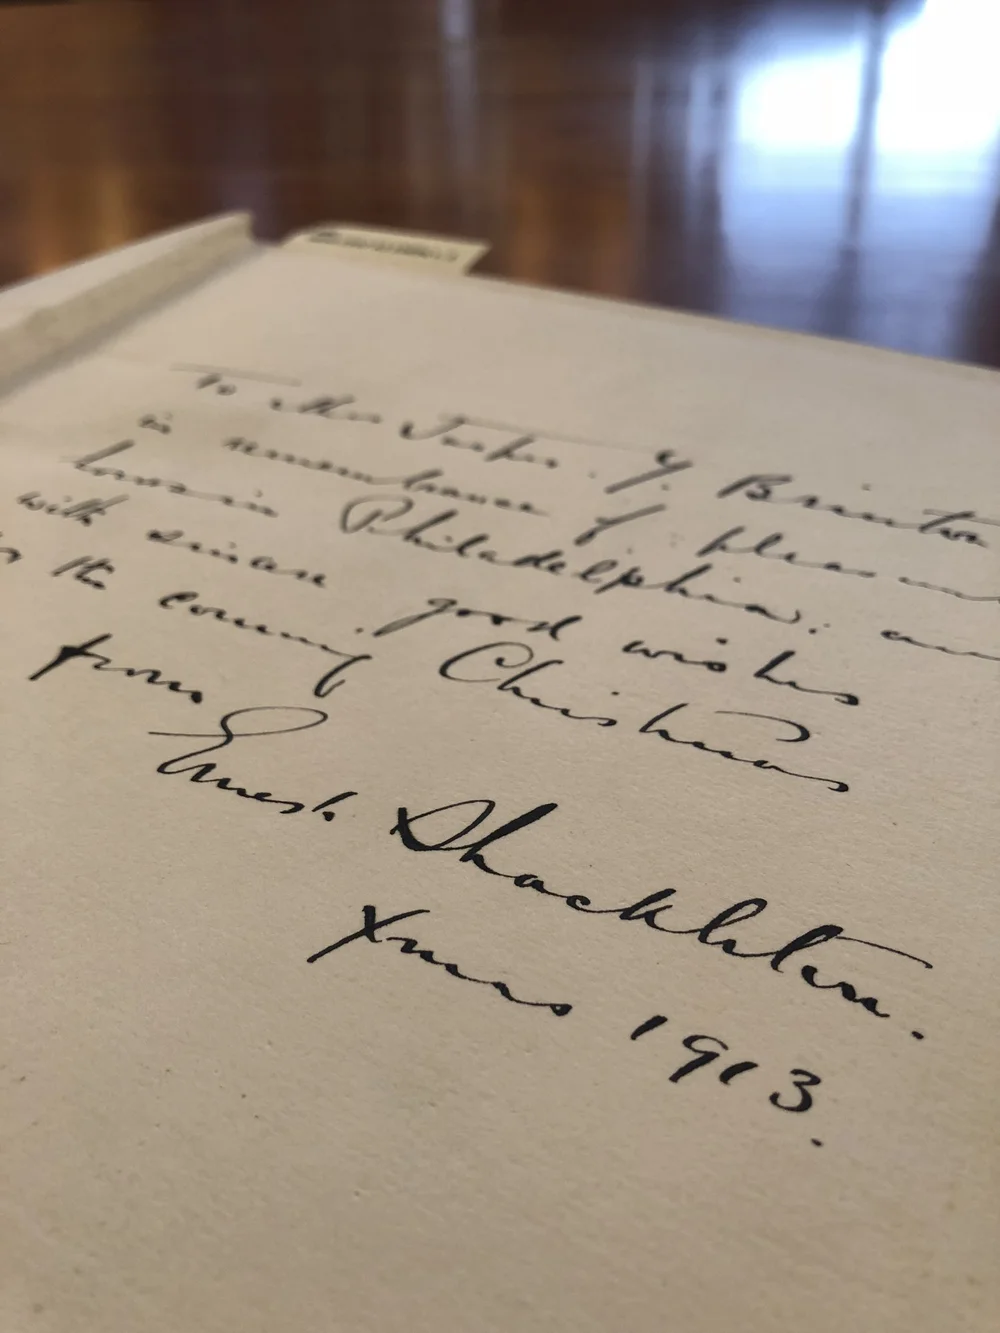 To Mrs Jasper. Y. Brinton
in remembrance of pleasant
hours in Philadelphia. and
with sincere good wishes
for the coming Christmas
from
Ernest Shackleton.
Xmas 1913.